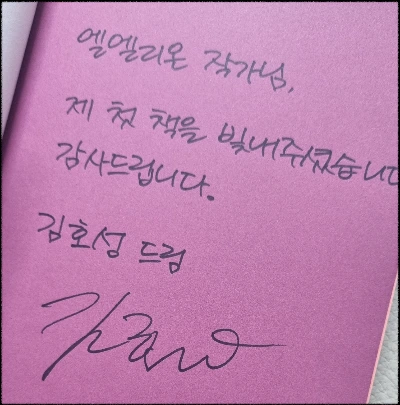 엘엘리온 작가님,
제 첫 책을 빛내주셨습니다
감사드립니다.
김호성 드림